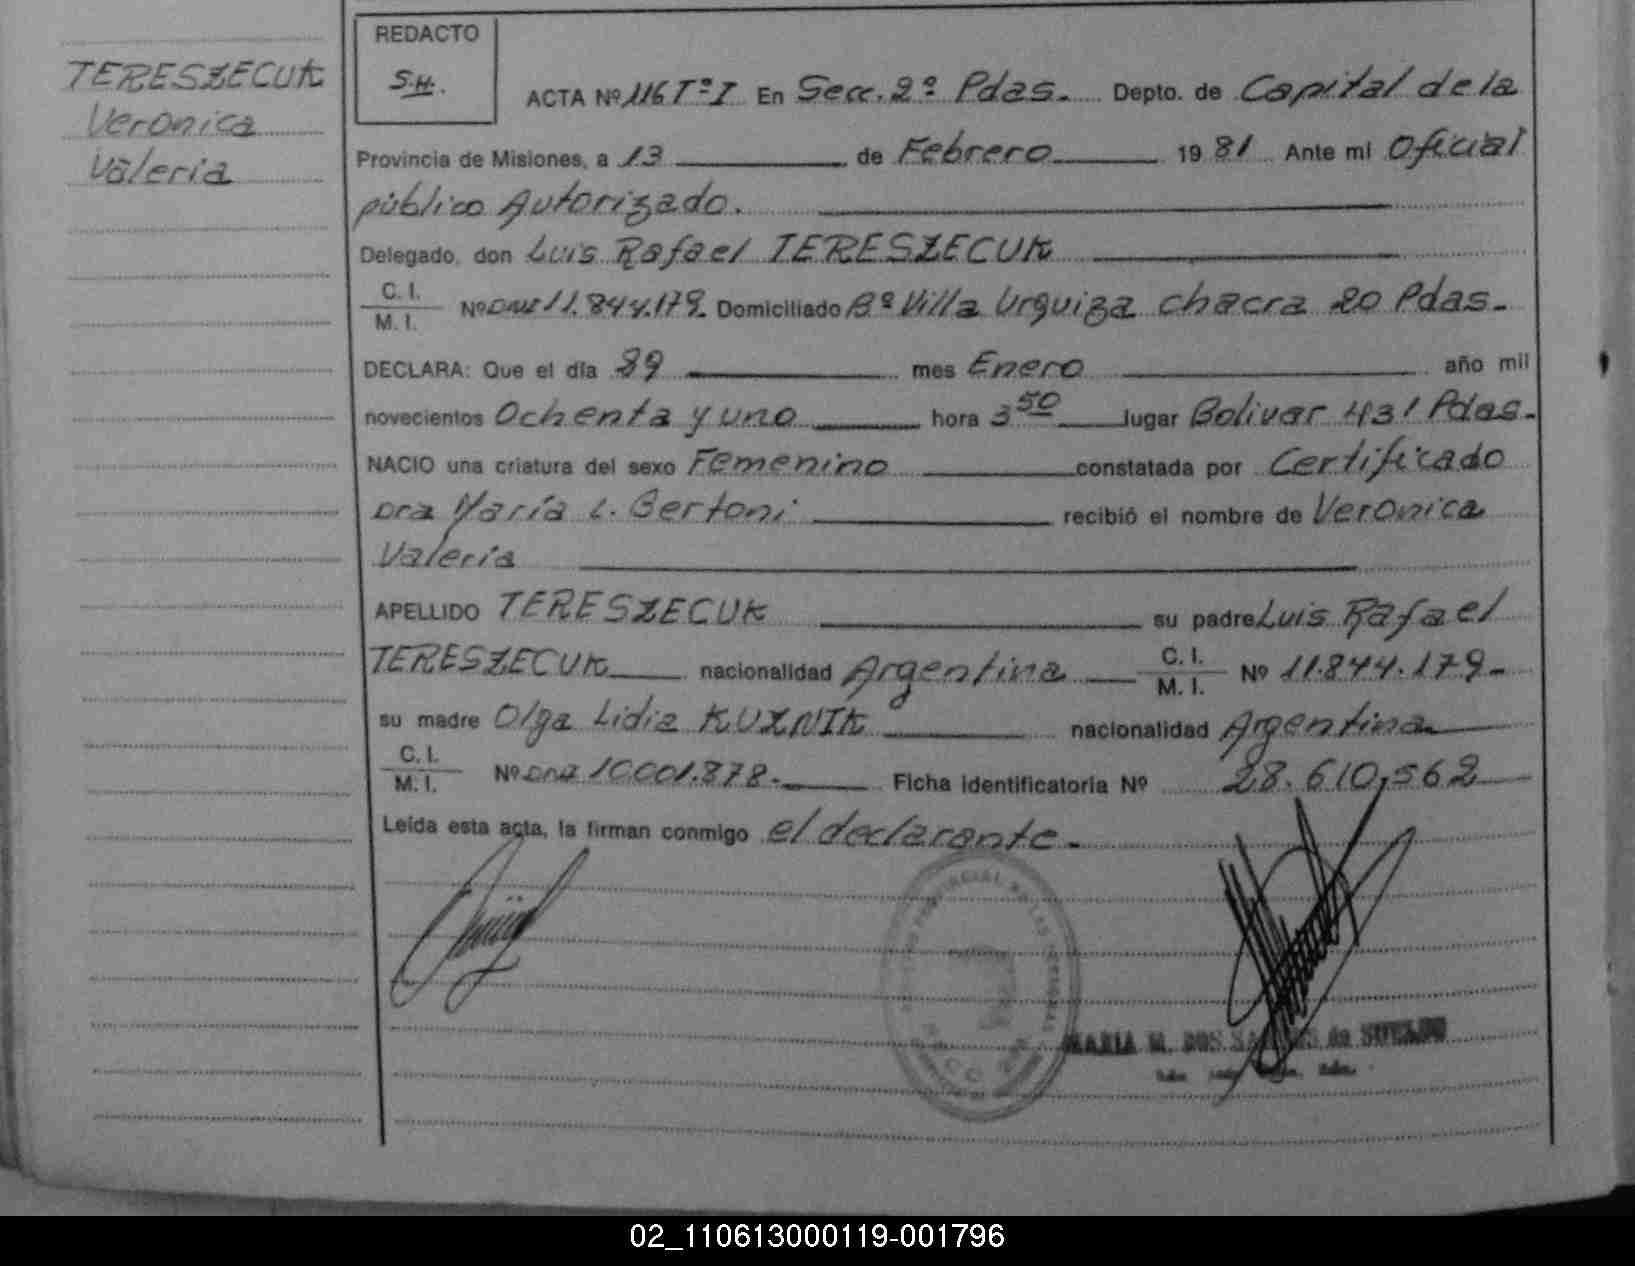 TERESZECUK
Veronica
Valeria
REDACTO
S.H.
ACTA Nº 116 Tº I En Secc. 2ª Pdas. Depto. de Capital de la
Provincia de Misiones, a 13 de Febrero 19 81 Ante mi Oficial
público Autorizado.
Delegado, don Luis Rafael TERESZECUK
C. I.
M. I. Nº DNI 11.844.179. Domiciliado Bº Villa Urquiza chacra 20 Pdas.
DECLARA: Que el día 29 mes Enero año mil
novecientos Ochenta y uno hora 3 50 lugar Bolivar 431 Pdas.
NACIO una criatura del sexo Femenino constatada por Certificado
Dra María L. Bertoni recibió el nombre de Veronica
Valeria
APELLIDO TERESZECUK su padre Luis Rafael
TERESZECUK nacionalidad Argentina C. I.
M. I. Nº 11.844.179.
su madre Olga Lidia KUZNIK nacionalidad Argentina
C. I.
M. I. Nº DNI 10.001.878. Ficha identificatoria Nº 28.610,562
Leída esta acta, la firman conmigo el declarante.
MARIA M. DOS SANTOS de SUELDO
02_110613000119-001796